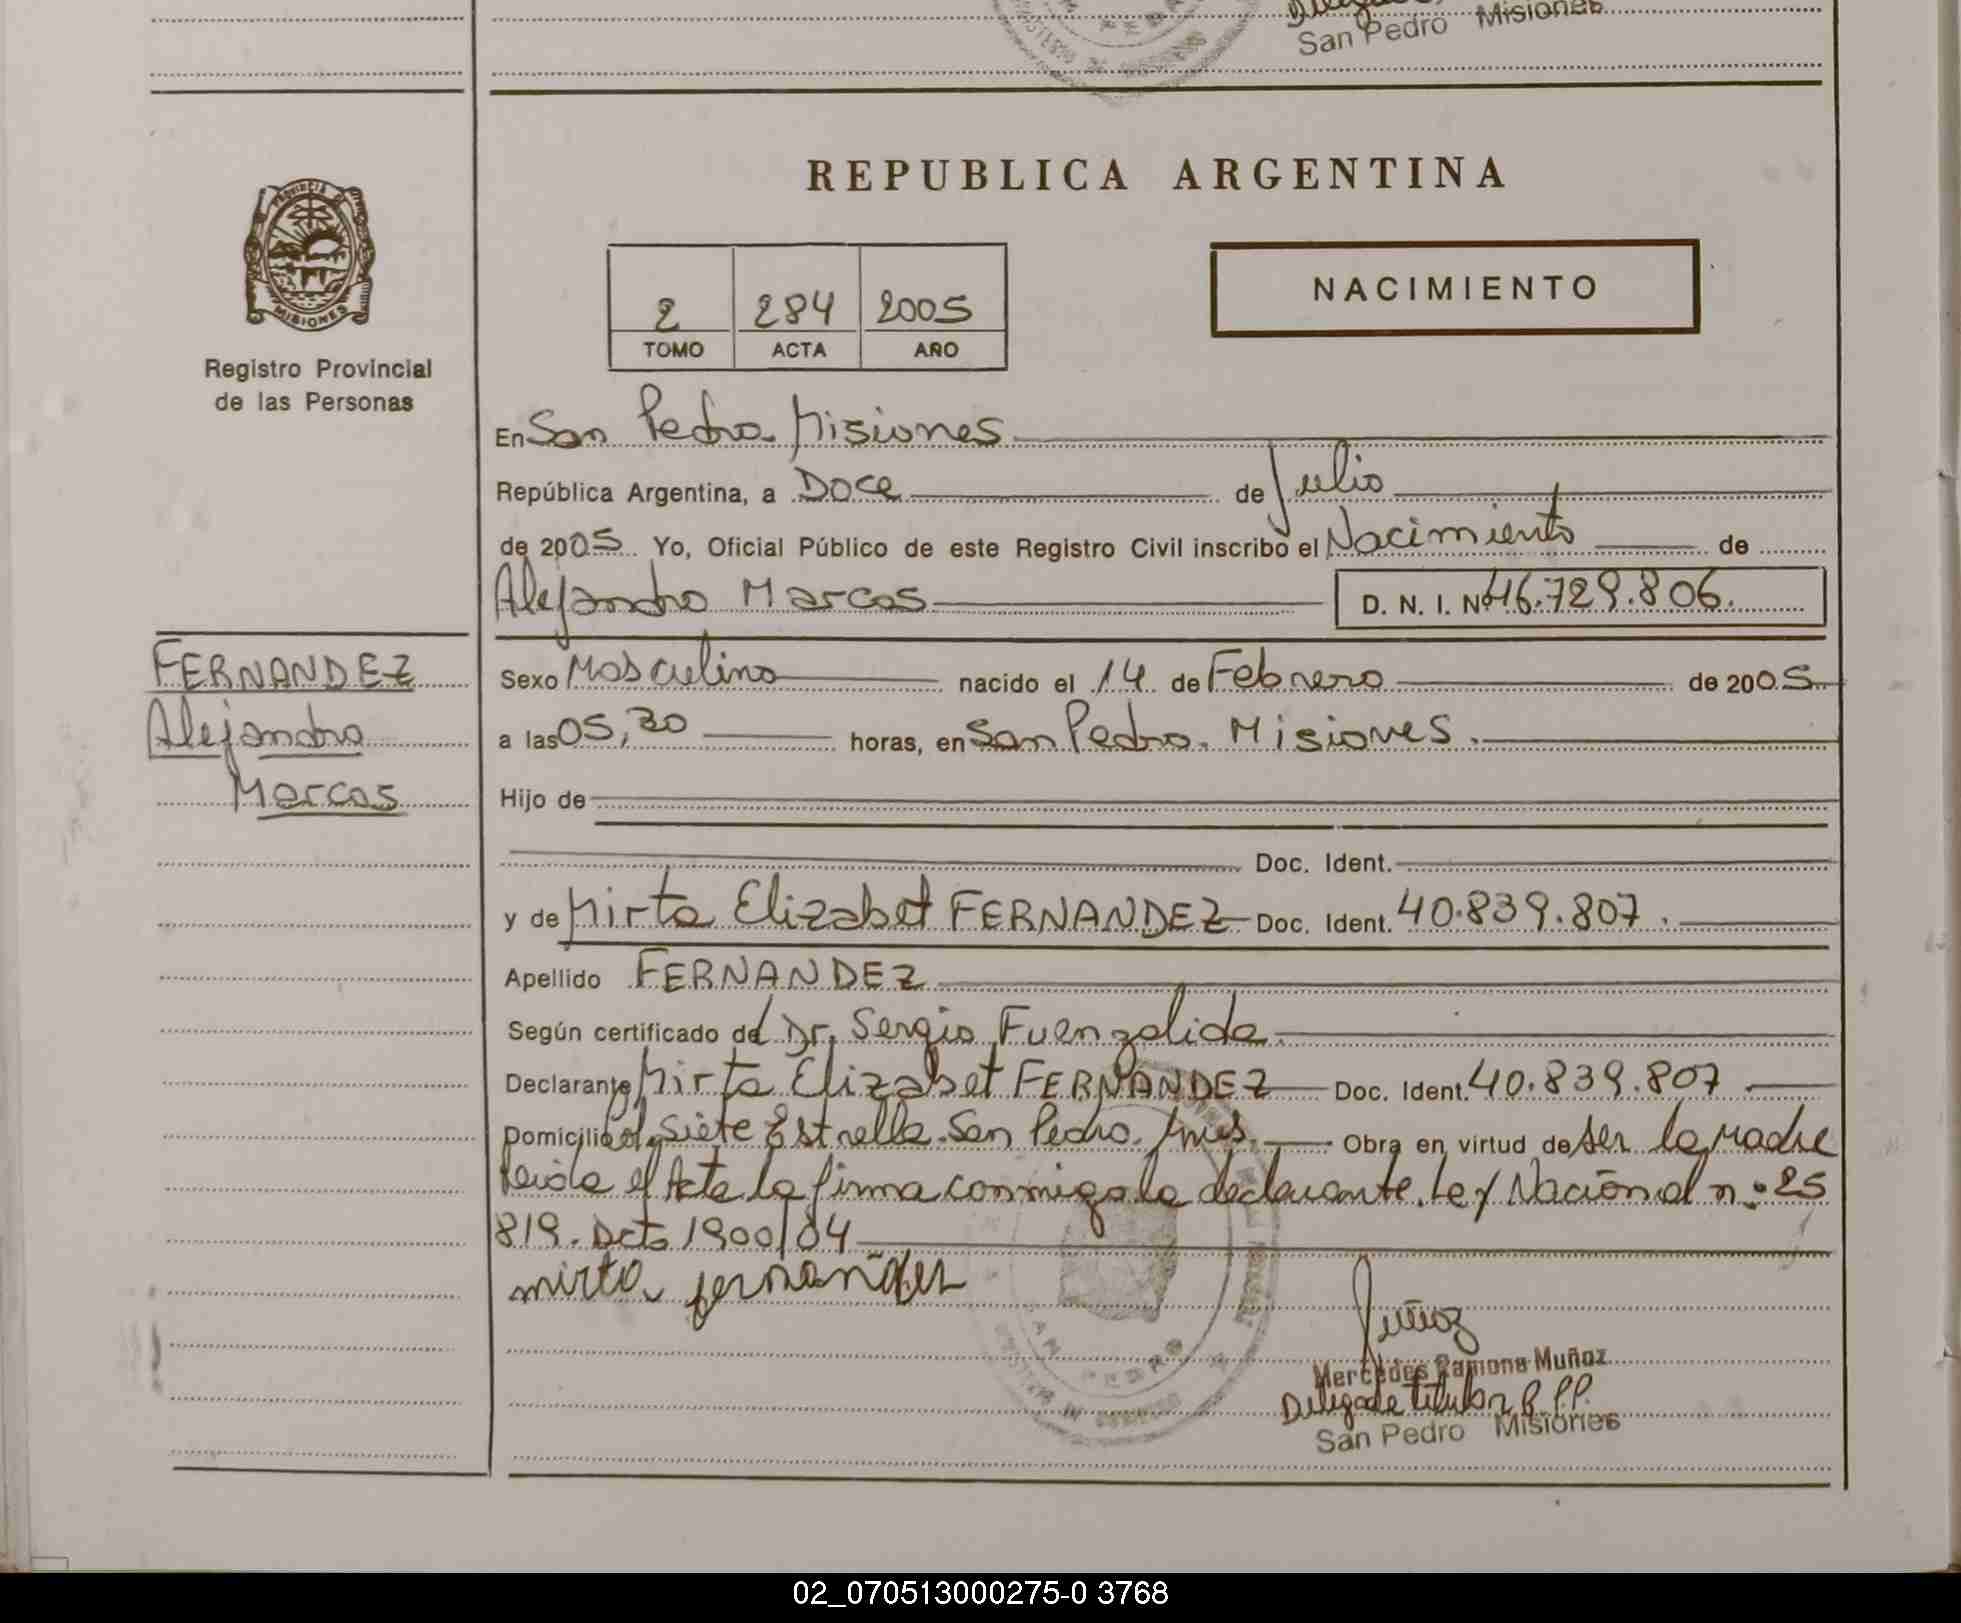 San Pedro Misiones
REPUBLICA ARGENTINA
PROVINCIA
MISIONES
Registro Provincial
de las Personas
2 284 2005
TOMO ACTA AÑO
NACIMIENTO
En San Pedro Misiones
República Argentina, a Doce de Julio
de 2005 Yo, Oficial Público de este Registro Civil inscribo el Nacimiento de
Alejandro Marcos D. N. I. Nº 46.729.806.
FERNANDEZ
Alejandro
Marcos
Sexo Masculino nacido el 14 de Febrero de 2005
a las 05,30 horas, en San Pedro. Misiones.
Hijo de
Doc. Ident.
y de Mirta Elizabet FERNANDEZ Doc. Ident. 40.839.807.
Apellido FERNANDEZ
Según certificado del Dr. Sergio Fuenzalida.
Declarante Mirta Elizabet FERNANDEZ Doc. Ident. 40.839.807.
Domicilio Siete Estrella. San Pedro. Mnes. Obra en virtud de ser la Madre
leida el Acta la firma conmigo la declarante. Ley Nacional n.º 25
819. Dcto 1900/04
mirta fernandez
Muñoz
Mercedes Ramona Muñoz
Delegada titular R.P.P.
San Pedro Misiones
02_070513000275-0 3768